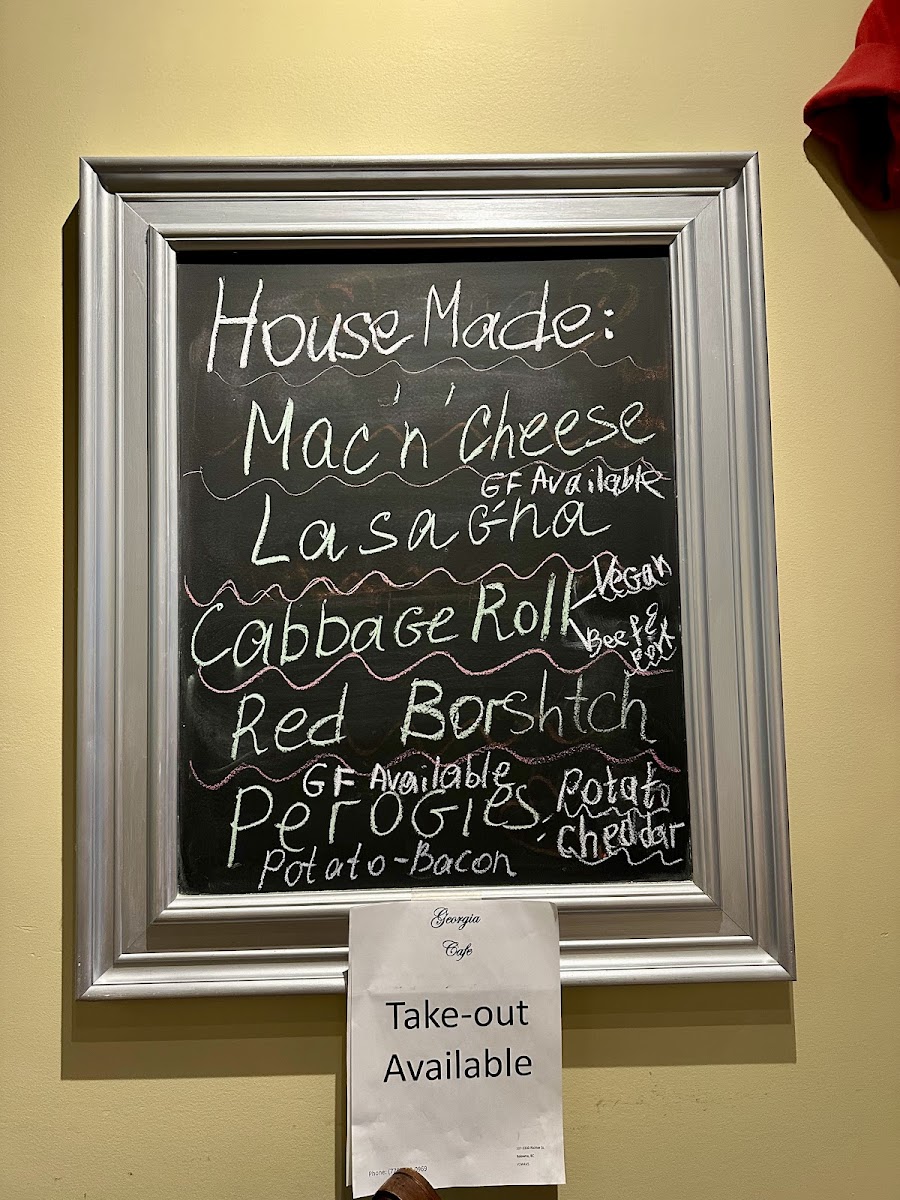 House Made:
Mac 'n' Cheese
GF Available
Lasagna
Cabbage Roll
Vegan
Beef &
Red Borshtch
GF Available
Perogies
Potato
Cheddar
Potato-Bacon
Georgia
Cafe
Take-out
Available
Phone: